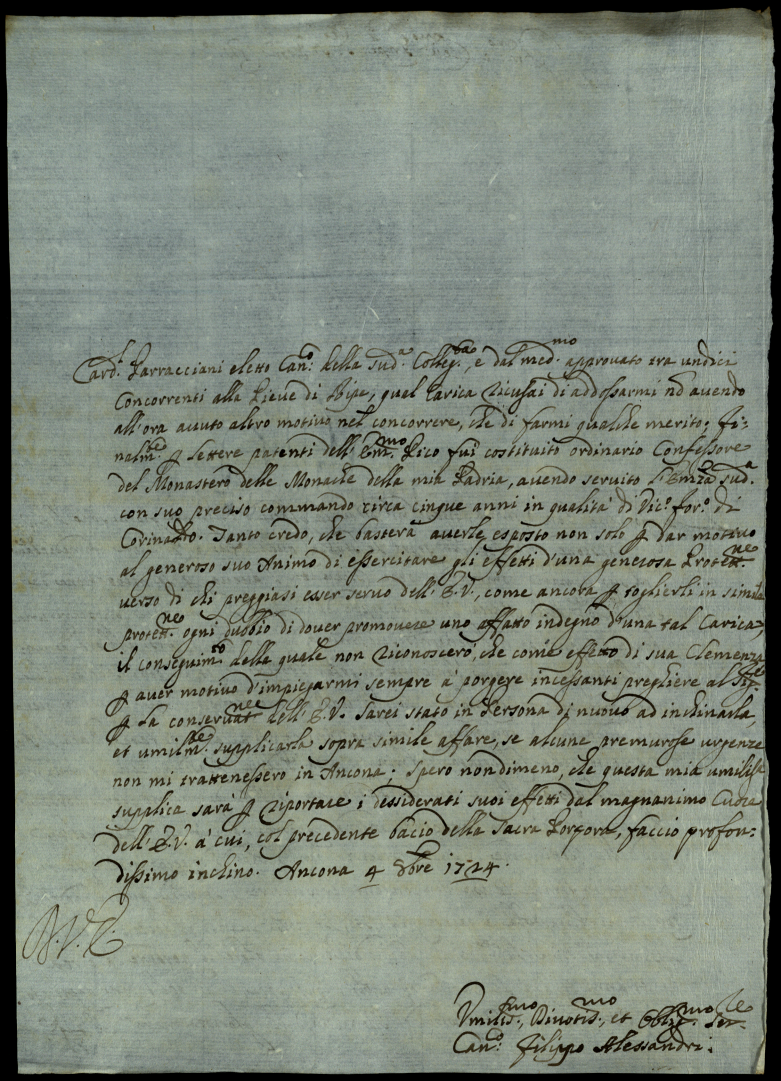 Card.l Parracciani eletto Can.o della sud.a Colleg.ta, e dal med.mo approvato tra undici
Concorrenti alla Pieve di Ripe, qual Carica ricusai di addossarmi nō avendo
all'ora avuto altro motivo nel concorrere, che di farmi qualche merito; Fi-
nalm.te p lettere patenti dell'Em.mo Pico fui costituito ordinario Confessore
del Monastero delle Monache della mia Padria, avendo servito l'Emza sud.a
con suo preciso commando circa cinque anni in qualità di Vic.o for.o di
Corinalto. Tanto credo, che basterà averle esposto non solo p dar motivo
al generoso suo Animo di essercitare gli effetti d'una generosa Protett.ne
verso di chi preggiasi esser servo dell'E.V., come ancora p toglierli in simile
protett.ne ogni dubbio di dover promovere uno affatto indegno d'una tal Carica,
il conseguim.to della quale non riconoscerò, che come effetto di sua Clemenza
p aver motivo d'impiegarmi sempre à porgere incessanti preghiere al Sig.re
p la conservat.ne dell'E.V. Sarei stato in Persona di nuovo ad inchinarla,
et umilm.te supplicarla sopra simile affare, se alcune premurose urgenze
non mi trattenessero in Ancona; Spero nondimeno, che questa mia umilis.a
supplica sarà p riportare i dessiderati suoi effetti dal magnanimo Cuore
dell'E.V. à cui, col precedente bacio della Sacra Porpora, faccio profon-
dissimo inchino. Ancona 4 8bre 1724.
D.V.E.
Umilis.mo, Divotis.mo, et Obblig.mo Ser.re
Can.o Filippo Alessandri.